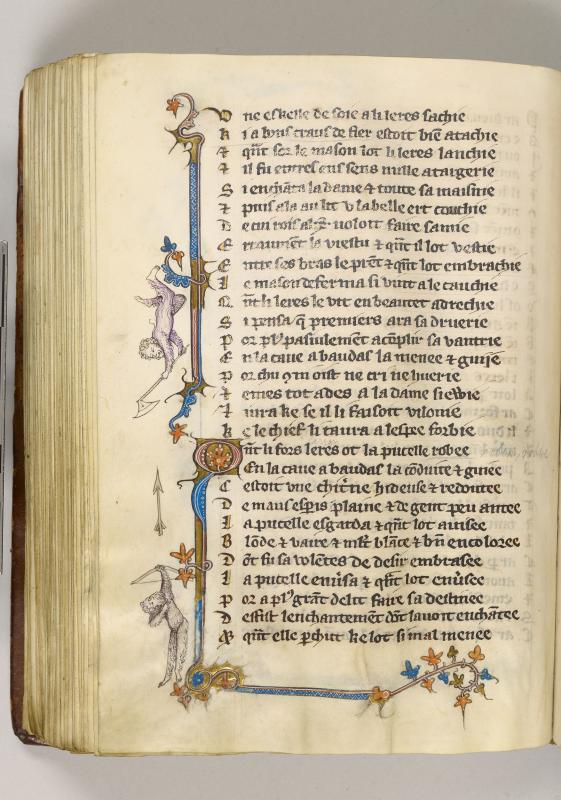 D une eskelle de soie a li leres sachie
K i a bons craus de fier estoit bien atachie
⁊ qñt sor le mason lot li leres lanchie
⁊ il fu entres ens sens nulle atargerie
S i enchãta la dame ⁊ toute sa maisnie
⁊ puis ala au lit v la belle ert couchie
D e cui rois uoloit faire samie
E rraument la viestu ⁊ qñt il lot vestie
E ntre ses bras le prent ⁊ qñt lot enbrachie
L e maison deferma si vint a le cauchie
Q ñt li leres le vit en beautet adrechie
S i pensa q̃ premiers ara sa druerie
P or plꝰ paisiulement acõplir sa
E n la caue a baudas la menee ⁊ guiie
P or chou oist ne cri ne huerie
⁊ emes tot ades a la dame
⁊ iura ke se il li faisoit vilonie
K e le chief li taura a lespee forbie
Q ñt li fors leres ot la pucelle robee
En la caue a baudas la cõduite ⁊ guiee
C estoit vne hideuse ⁊ redoutee
D e maus espris plaine ⁊ de gent peu antee
L a pucelle esgarda ⁊ qñt lot auisee
B lõde ⁊ vaire ⁊ blãce ⁊ bñ encoloree
D õt fu sa volentes de desir enbrasee
L a pucelle ⁊ qñt lot
P or a plꝰ grãt delit faire sa destinee
D effist lenchantement dõt lauoit enchãtee
⁊ qñt elle pchiut ke lot si mal menee